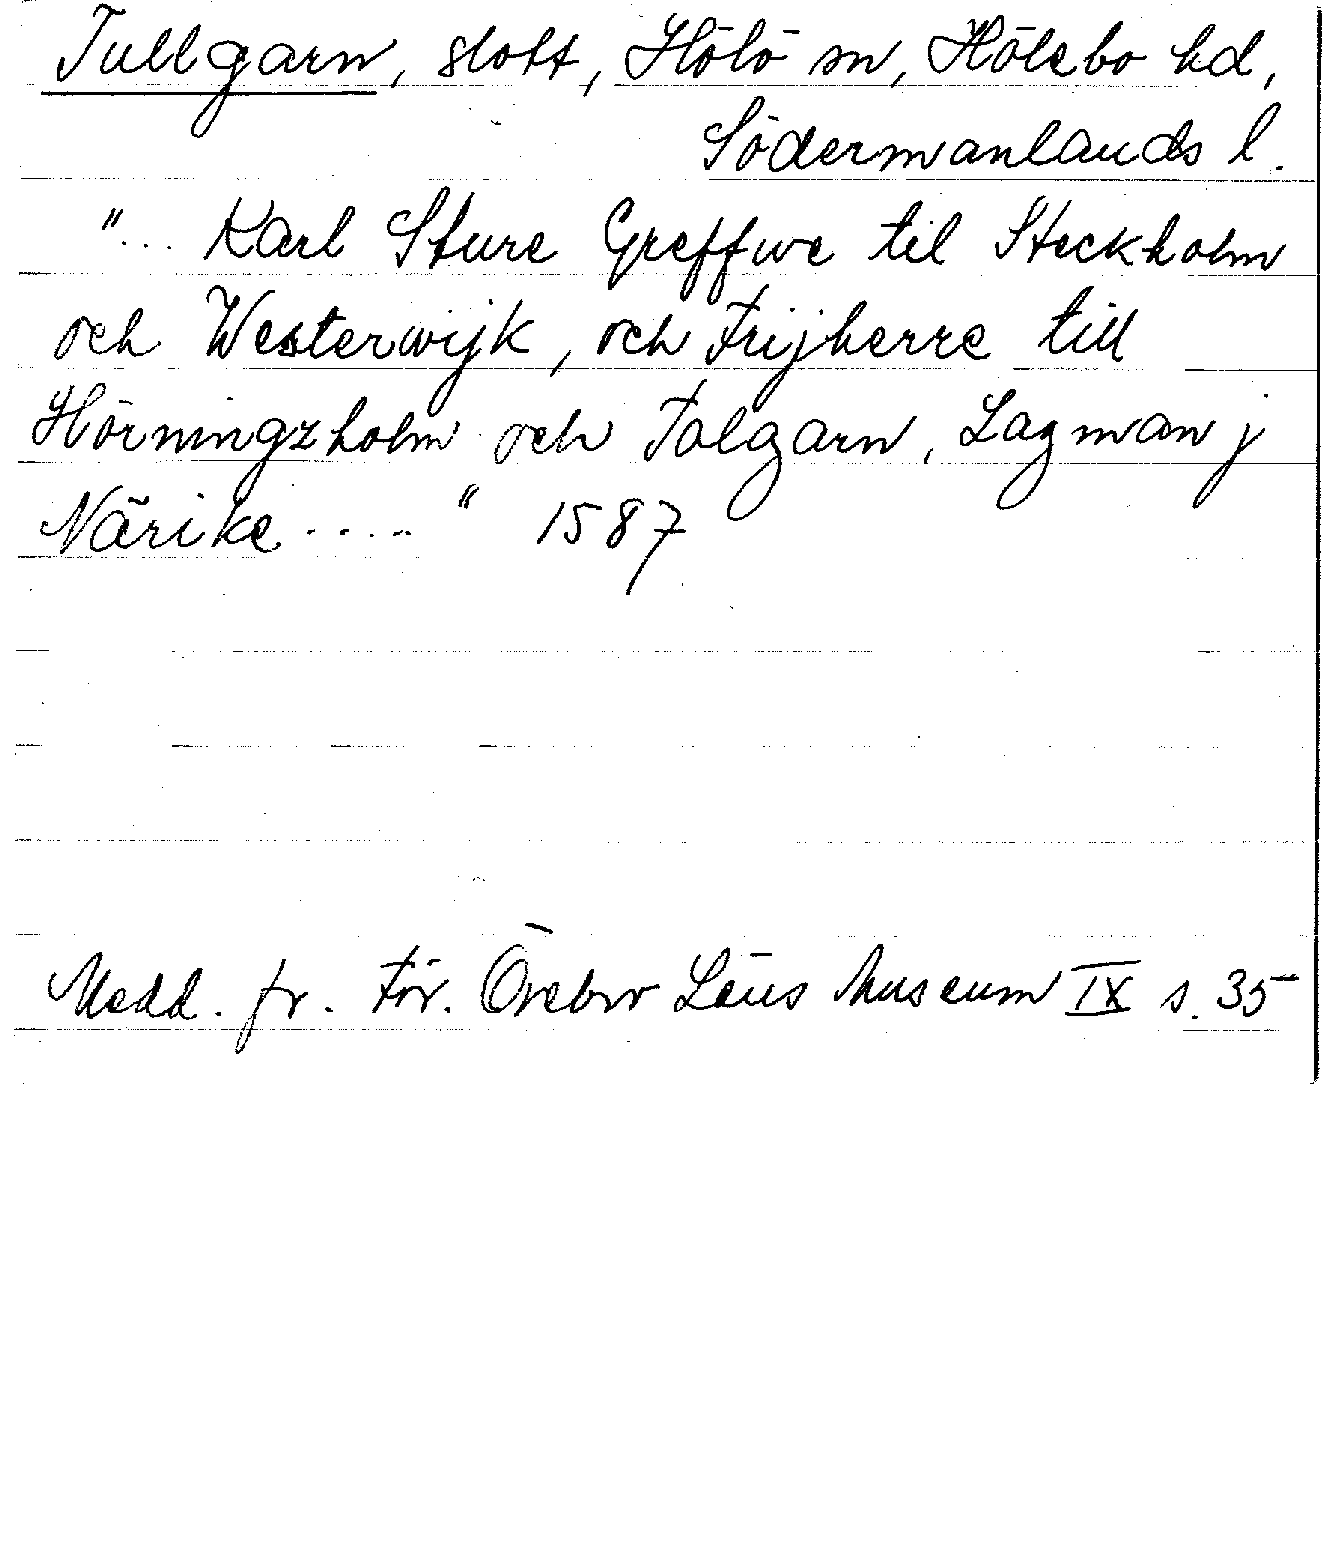 Tullgarn, slott, Hölö sn, Hölebo hd,
Södermanlands l.
"... Karl Sture Greffwe til Steckholm
och Westerwijk, och Frijherre till
Hörningzholm och Tolgarn, Lagman j
Närike ....." 1587
Medd. fr. För. Örebro Läns Museum IX s. 35